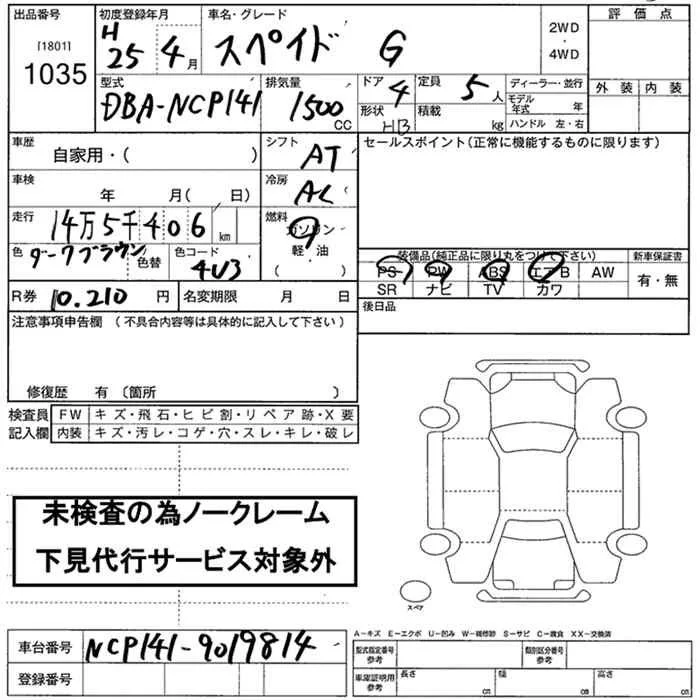 出品番号 初度登録年月 車名・グレード 2WD 評価点
[1801] H スペイド G ・
1035 25年4月 4WD
型式 排気量 ドア 定員 ディーラー・並行 外装 内装
DBA-NCP141 1500CC 4 5人 モデル年式 年
形状 積載 ハンドル 左・右
HB kg
車歴 シフト セールスポイント(正常に機能するものに限ります)
自家用・( ) AT
車検 冷房
年 月( 日) AC
走行 燃料
14万5千406km ガソリン
色 ダークブラウン 色替 色コード 4U3 軽・油
( )
装備品(純正品に限り丸をつけて下さい) 新車保証書
PS PW ABS エアB AW 有・無
SR ナビ TV カワ
R券 10.210円 名変期限 月 日 後日品
注意事項申告欄 (不具合内容等は具体的に記入して下さい)
修復歴 有 〔箇所 )
検査員 FW キズ・飛石・ヒビ割・リペア跡・X要
記入欄 内装 キズ・汚レ・コゲ・穴・スレ・キレ・破レ
未検査の為ノークレーム
下見代行サービス対象外
スペア
A-キズ E-エクボ U-凹み W-補修跡 S-サビ C-腐食 XX-交換済
車台番号 NCP141-9019814
登録番号
型式指定番号 参考 類別区分番号 参考
車庫証明用 参考 長さ cm 幅 cm 高さ cm